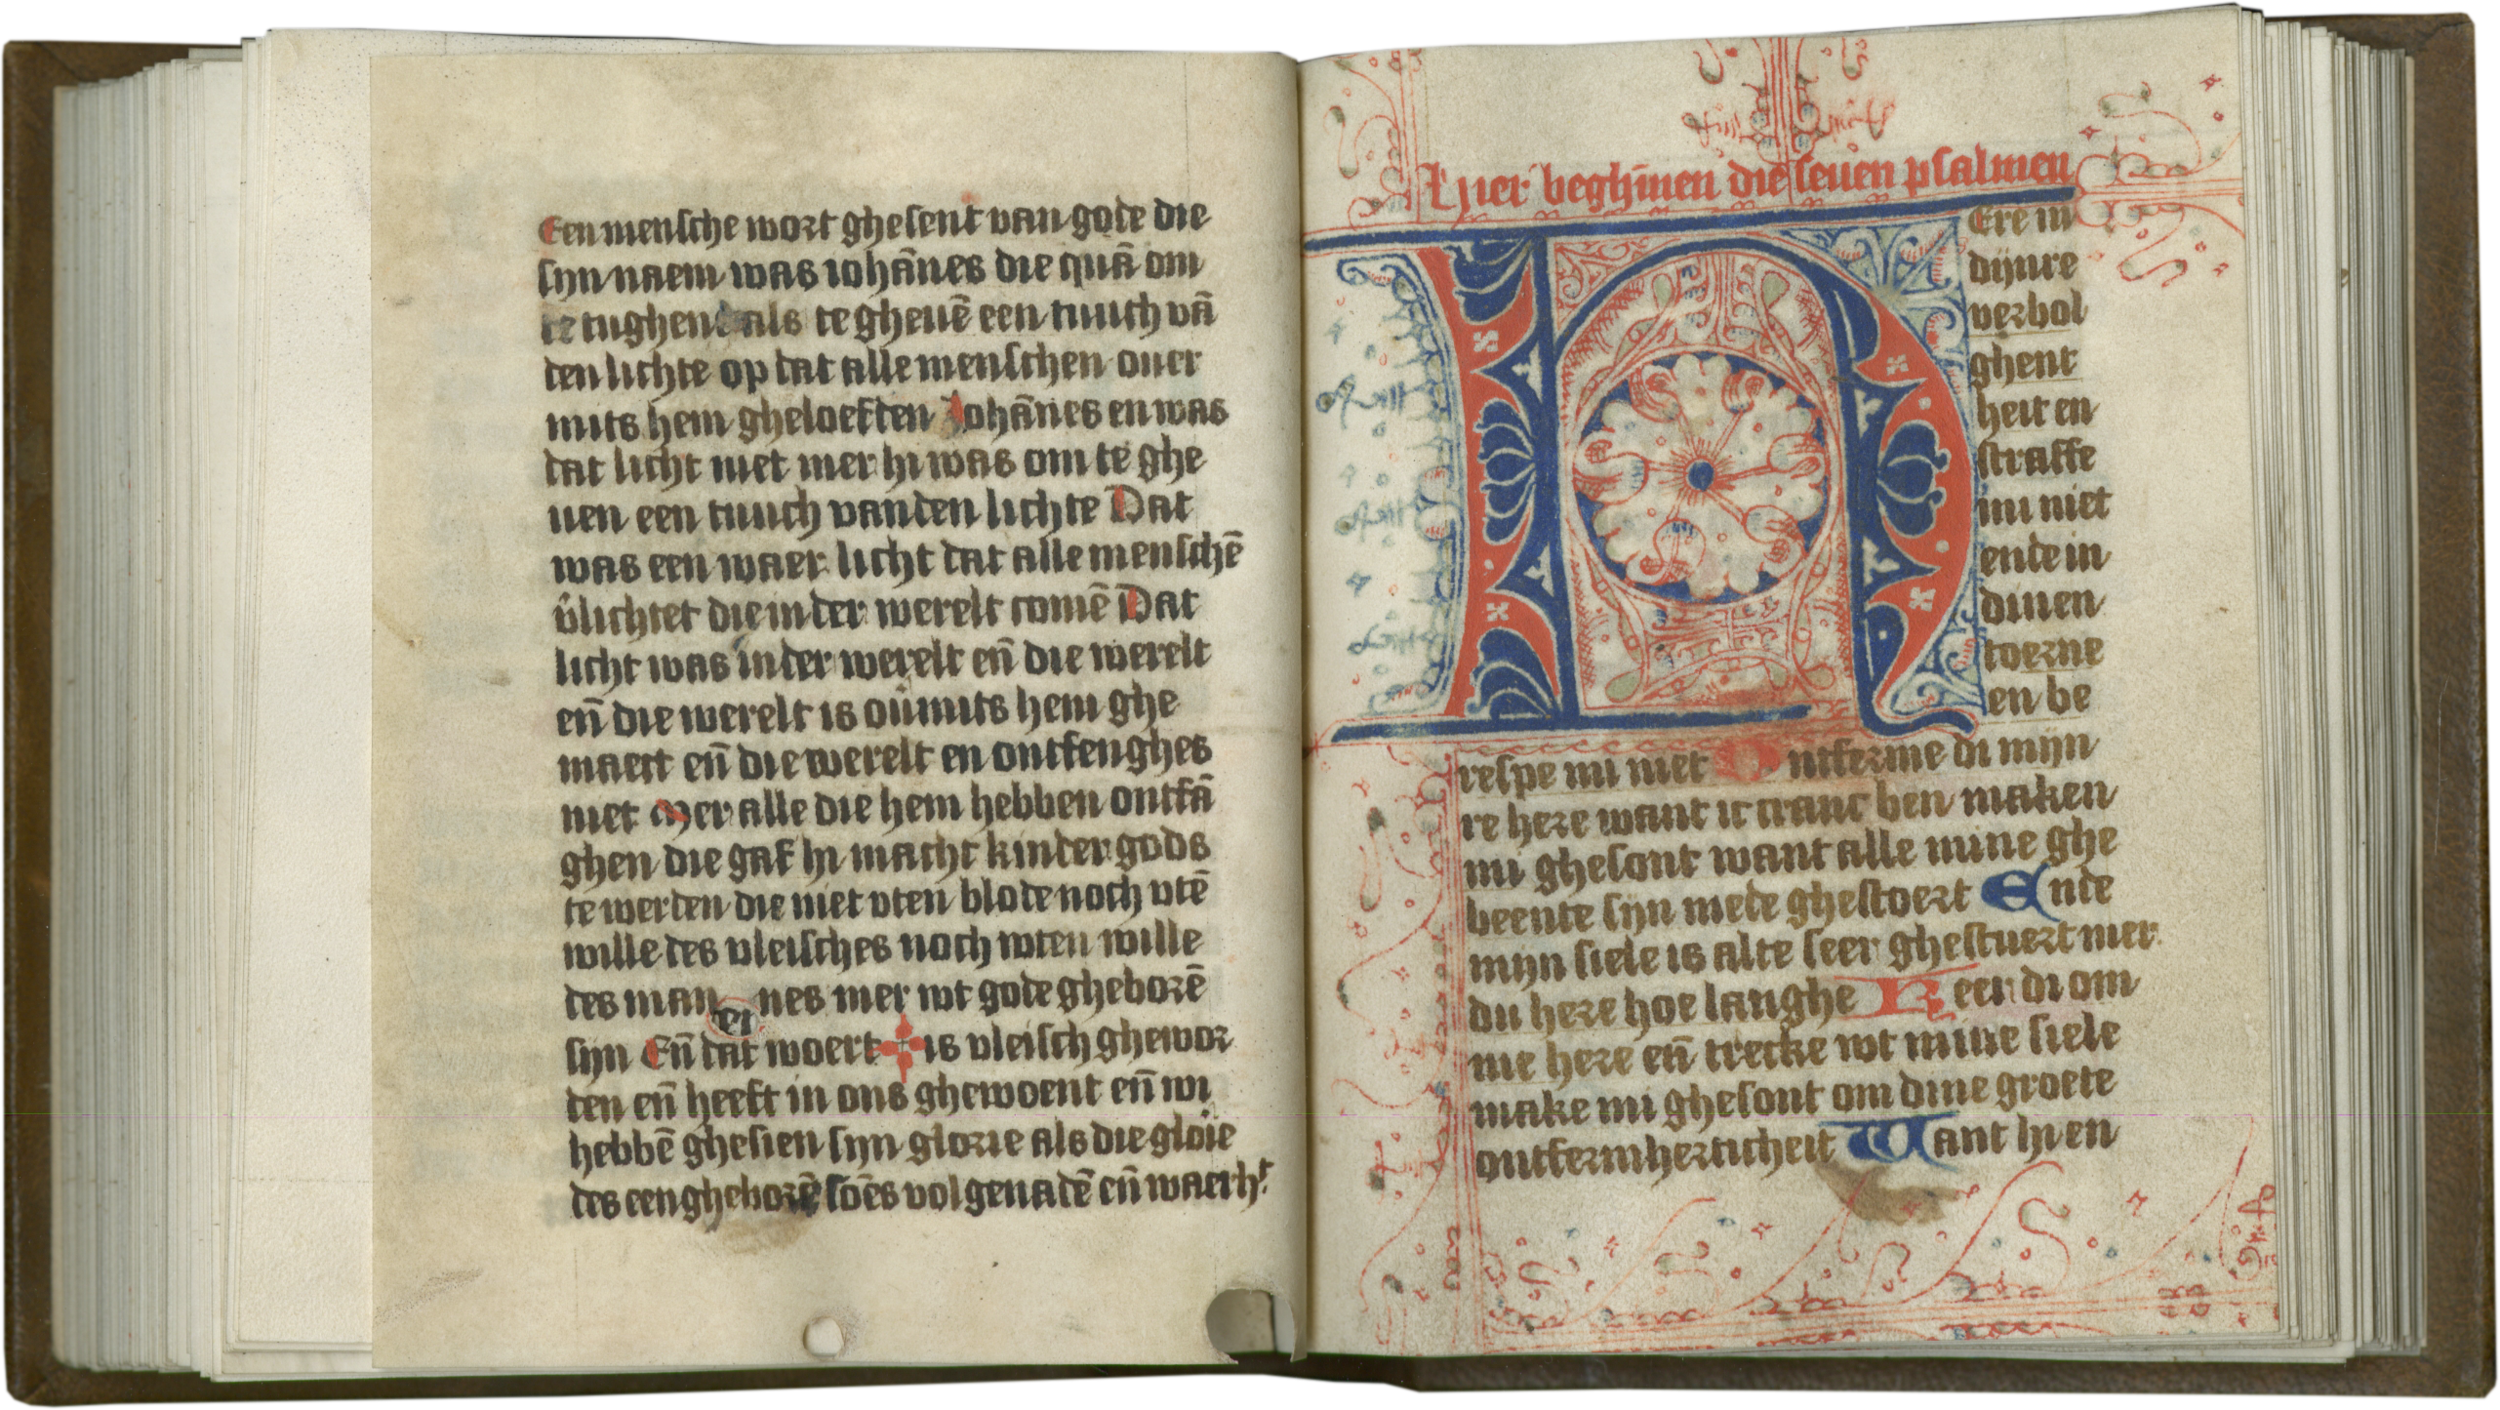 Een mensche wort ghesent van gode die
sijn naem was iohānes die quā om
te tughen als te gheuē een tuuch vā
den lichte op dat alle menschen ouer
mits hem gheloefden Johānes en was
dat licht niet mer hi was om te ghe
uen een tuuch vanden lichte Dat
was een waer licht dat alle menschē
v̄lichtet die in der werelt comē Dat
licht was in der werelt en̄ die werelt
en̄ die werelt is oūmits hem ghe
maect en̄ die werelt en ontfenghes
niet Mer alle die hem hebben ontfā
ghen die gaf hi macht kinder gods
te werden die niet vten blode noch vtē
wille des vleisches noch wten wille
des man nes mer wt gode gheborē
sijn En̄ dat woert is vleisch ghewor
den en̄ heeft in ons ghewoent en̄ wi
hebbē ghesien sijn glorie als die glōie
des een gheborē soēs vol genadē en̄ waerht
Hier beghīnen die seuen psalmen
HEre in
dijnre
verbol
ghent
heit en
straffe
mi niet
ende in
dinen
toerne
en be
respe mi niet Ontferme di mijn
re here want ic cranc ben maken
mi ghesont want alle mine ghe
beente sijn mede ghestoert Ende
mijn siele is alte seer ghestuert mer
du here hoe langhe Keer di om
me here en̄ trecke wt mine siele
make mi ghesont om dine groete
ontfermherticheit Want hi en